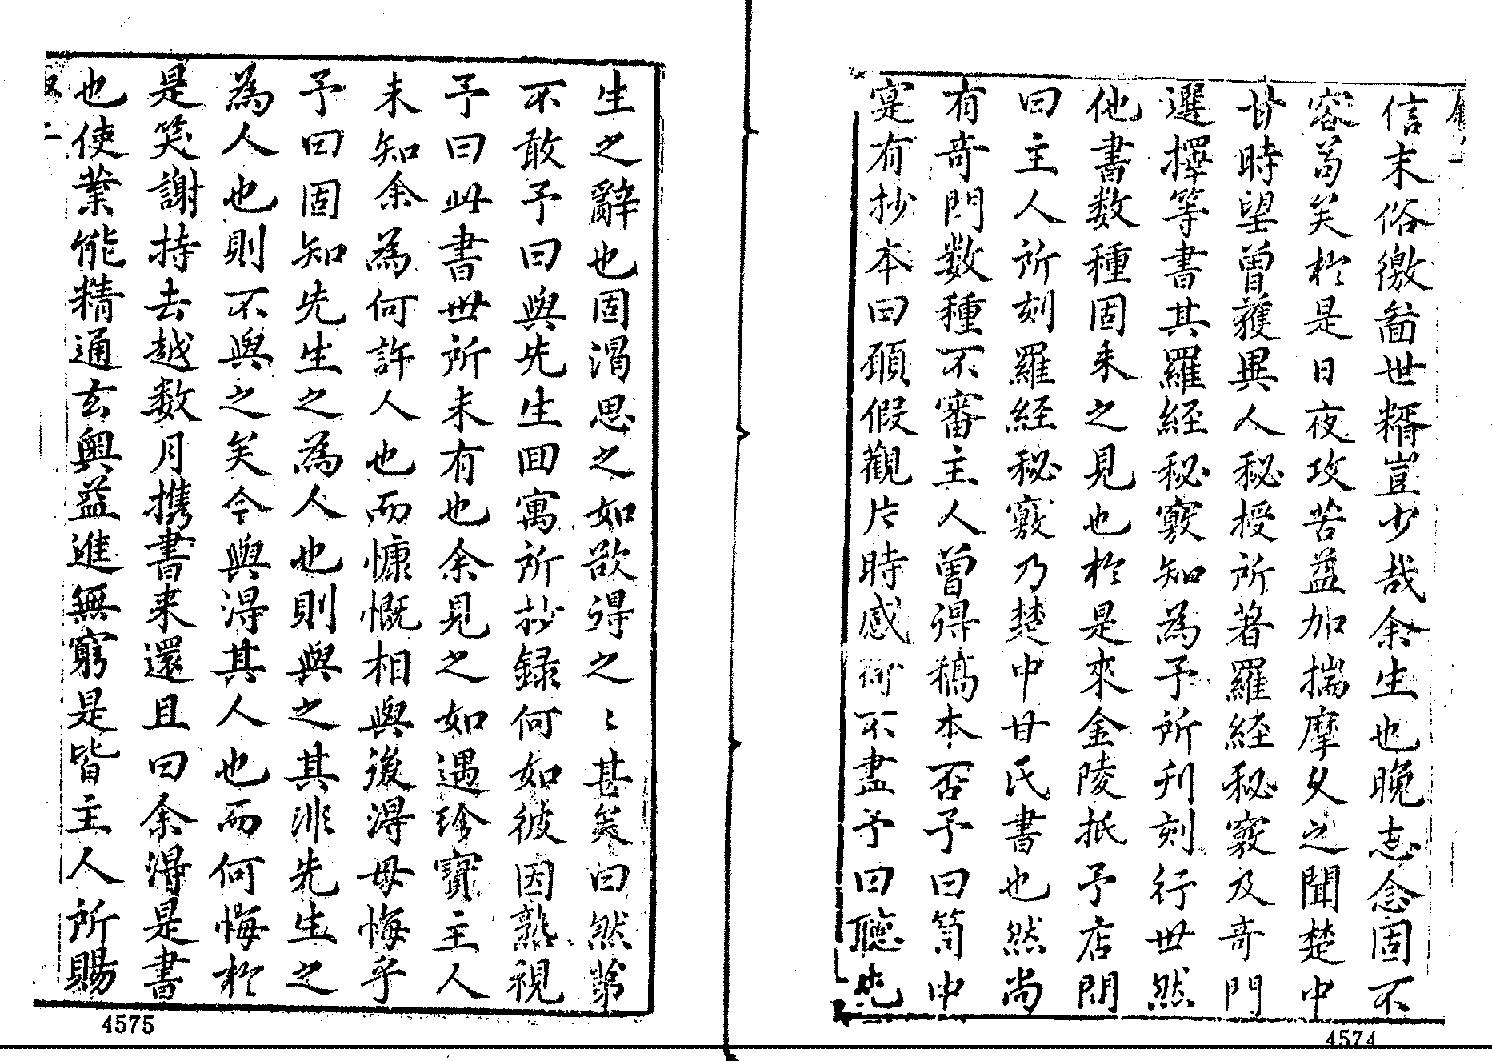 信末俗繳畣世糈豈少哉余生也晚志念固不
容茍矣於是日夜攻苦益加揣摩久之聞楚中
甘時望曾獲異人秘授所著羅經秘竅及奇門
選擇等書其羅經秘竅知為予所刋刻行世然
他書数種固未之見也於是來金陵抵予店問
曰主人所刻羅経秘竅乃楚中甘氏書也然尚
有奇門数種不審主人曾得稿本否予曰笥中
寔有抄本曰頋假觀片時感謝不盡予曰聽先
生之辭也固渴思之如欲得之〻甚矣曰然第
不敢予曰與先生回寓所抄録何如彼因熟視
予曰此書世所未有也余見之如遇珍寶主人
未知余為何許人也而慷慨相與後淂毋悔乎
予曰固知先生之為人也則與之其非先生之
為人也則不與之矣今與淂其人也而何悔於
是笑謝持去越数月攜書来還且曰余淂是書
也使業能精通玄奧益進無窮是皆主人所賜
4575
4574